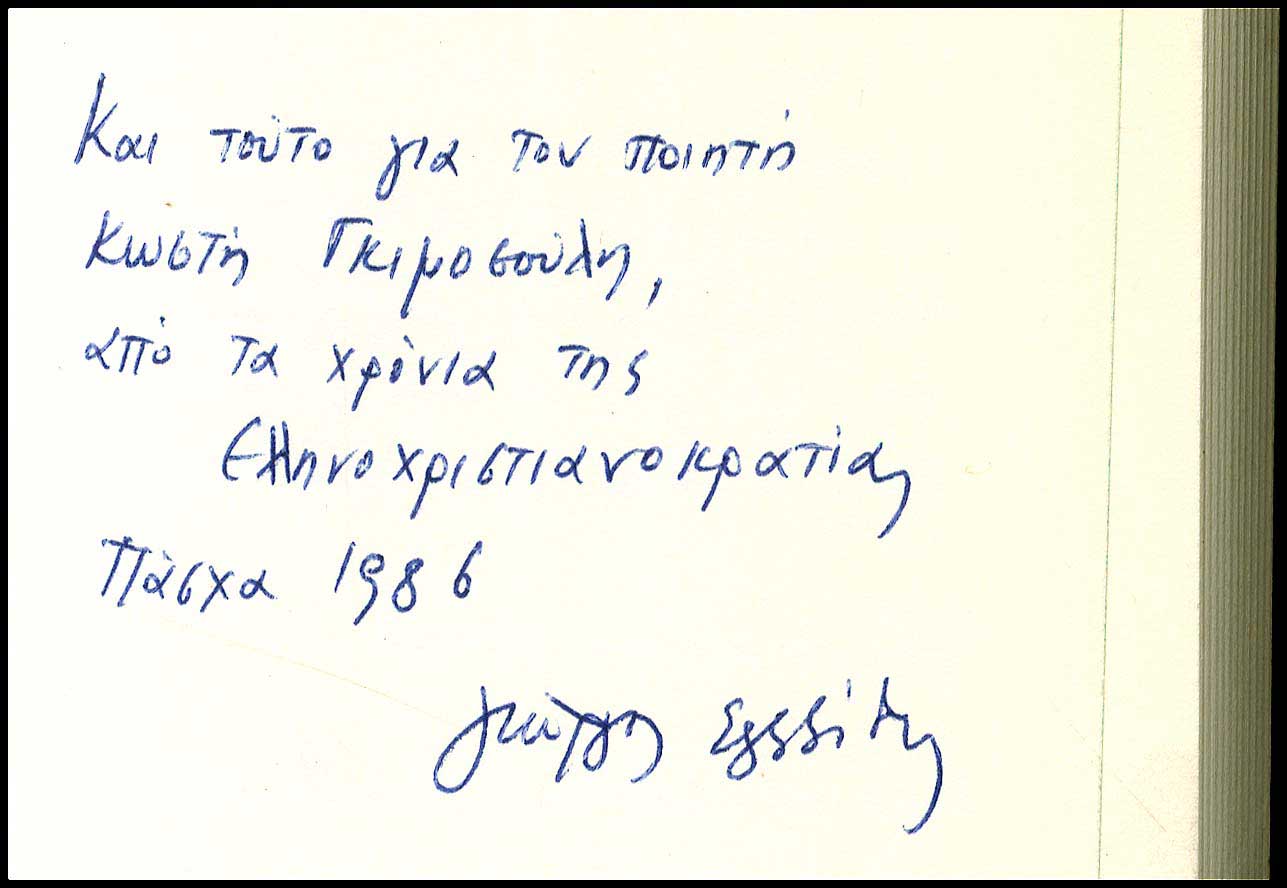 Και τούτο για τον ποιητή
Κωστή Γκιμοσούλη,
από τα χρόνια της
Ελληνοχριστιανοκρατίας
Πάσχα 1986
Γιώργης